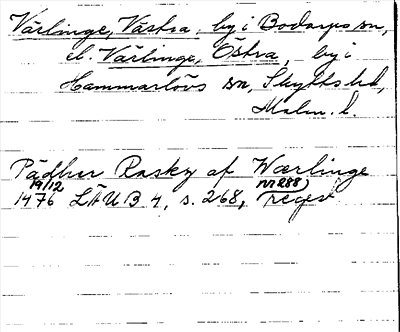 Värlinge, Västra, by i Bodarps sn,
el. Värlinge, Östra, by i
Hammarlövs sn, Skytts hd,
Malm. l.
Pädher Rasky af Wærlinge
19/12 nr 288)
1476 LÄUB 4, s. 268, regest